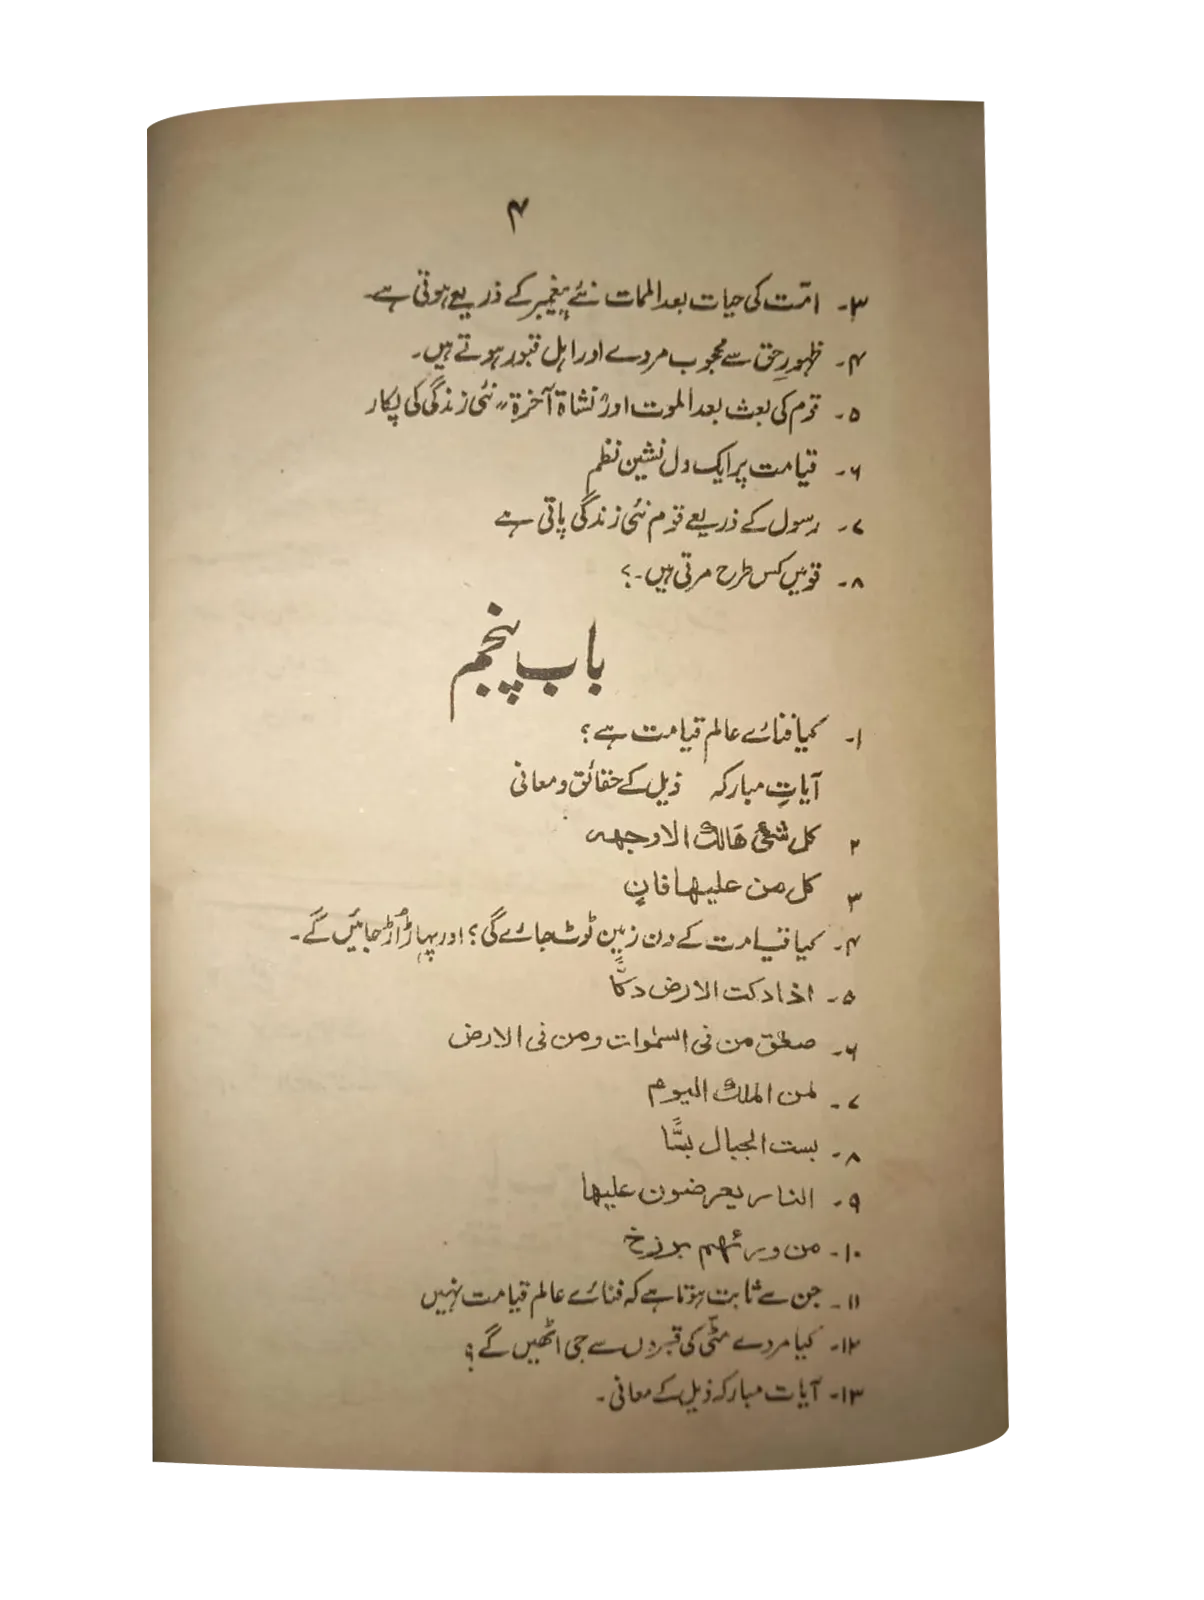 ۴
۳۔ امّت کی حیات بعد الممات نئے پیغمبر کے ذریعے ہوتی ہے۔
۴۔ ظہورِ حق سے محجوب مردے اور اہل قبور ہوتے ہیں۔
۵۔ قوم کی بعث بعد الموت اور "نشاۃ آخرۃ" نئی زندگی کی پکار
۶۔ قیامت پر ایک دل نشین نظم
۷۔ رسول کے ذریعے قوم نئی زندگی پاتی ہے
۸۔ قومیں کس طرح مرتی ہیں۔؟
باب پنجم
۱۔ کیا فنائے عالم قیامت ہے؟
آیاتِ مبارکہ ذیل کے حقائق و معانی
۲ کل شئی ھالک الا وجھہ
۳ کل من علیھا فانٍ
۴۔ کیا قیامت کے دن زمین ٹوٹ جائے گی؟ اور پہاڑ اُڑ جائیں گے۔
۵۔ اذا دکت الارض دکًّا
۶۔ صعق من فی السمٰوات ومن فی الارض
۷۔ لمن الملک الیوم
۸۔ بست الجبال بسًّا
۹۔ النار یعرضون علیھا
۱۰۔ من ورئھم برزخ
۱۱۔ جن سے ثابت ہوتا ہے کہ فنائے عالم قیامت نہیں
۱۲۔ کیا مردے مٹّی کی قبروں سے جی اٹھیں گے؟
۱۳۔ آیات مبارکہ ذیل کے معانی۔